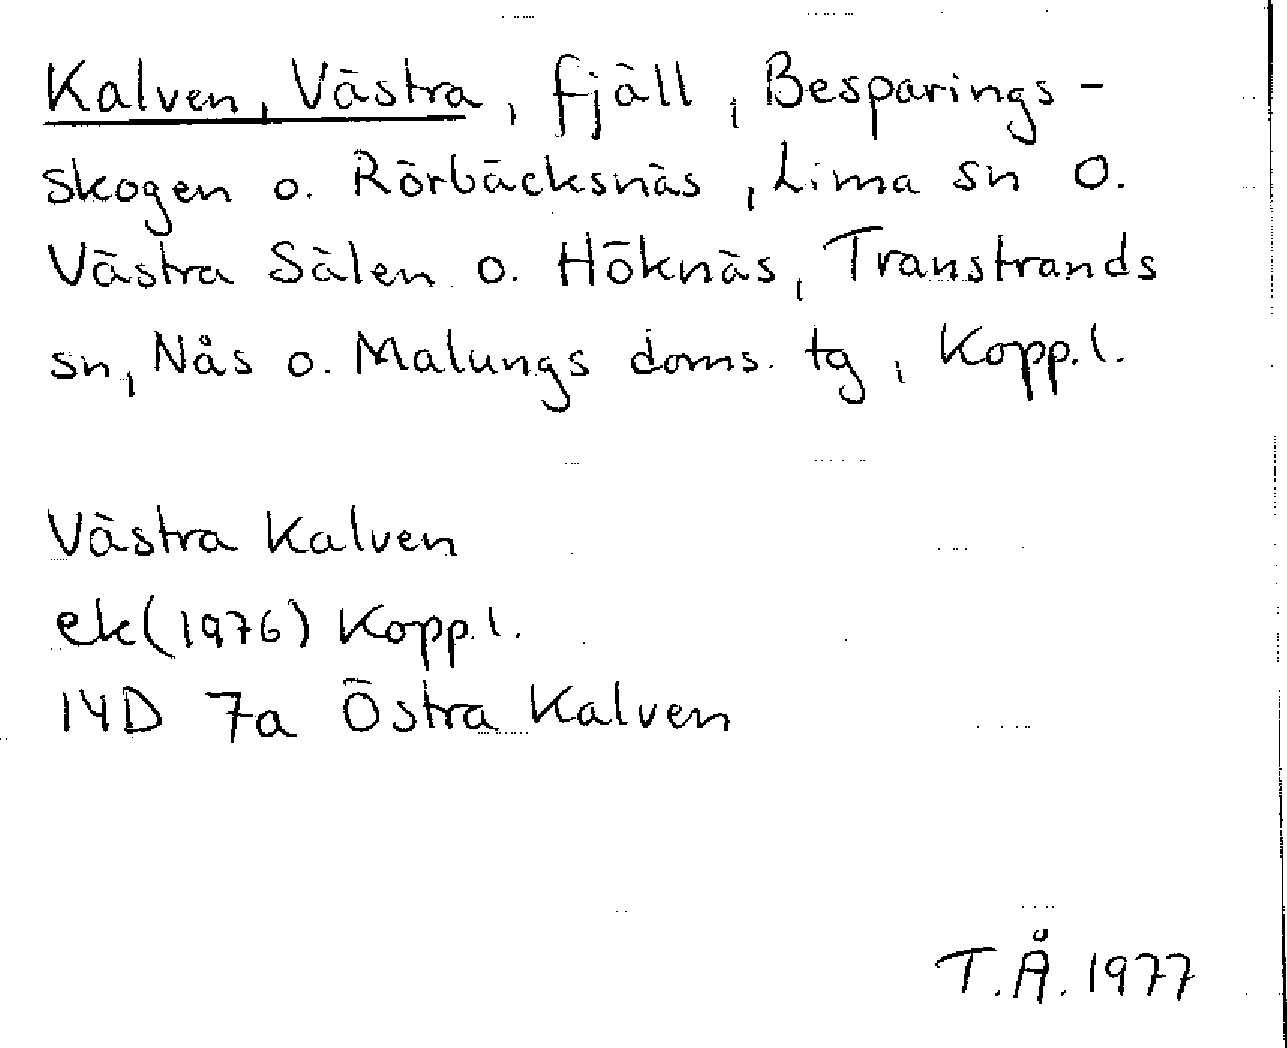 Kalven, Västra, fjäll, Besparings-
skogen o. Rörbäcksnäs, Lima sn o.
Västra Sälen o. Höknäs, Transtrands
sn, Nås o. Malungs doms. tg, Kopp.l.
Västra Kalven
ek(1976) Kopp.l.
14D 7a Östra Kalven
T.Å. 1977